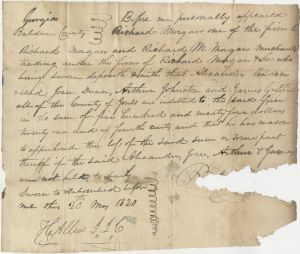 Georgia
Baldwin County
Before me personally appeared
Richard Morgan one of the firm
Richard Morgan and Richard M. Morgan merchants
trading under the firm of Richard Morgan & Son who
being sworn deposeth & saith that Alexander
Green Dunn, Arthur Johnston and James Griffin
all of the County of Jones are indebted to the said firm
in the sum of five hundred and ninety four dollars
twenty one and a fourth cents and that he has reason
to apprehend the loss of the said sum or some part
thereof if the said Alexander, Green, Arthur &
are not held to bail
Sworn to & subscribed before
me this May 1820